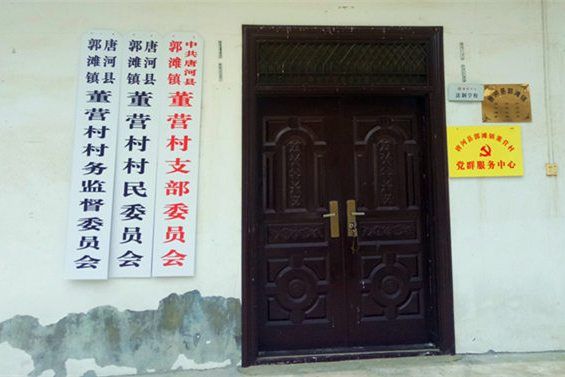 中共唐河县
郭滩镇
董营村支部委员会
唐河县
郭滩镇
董营村村民委员会
唐河县
郭滩镇
董营村村务监督委员会
法制学校
唐河县郭滩镇董营村
党群服务中心